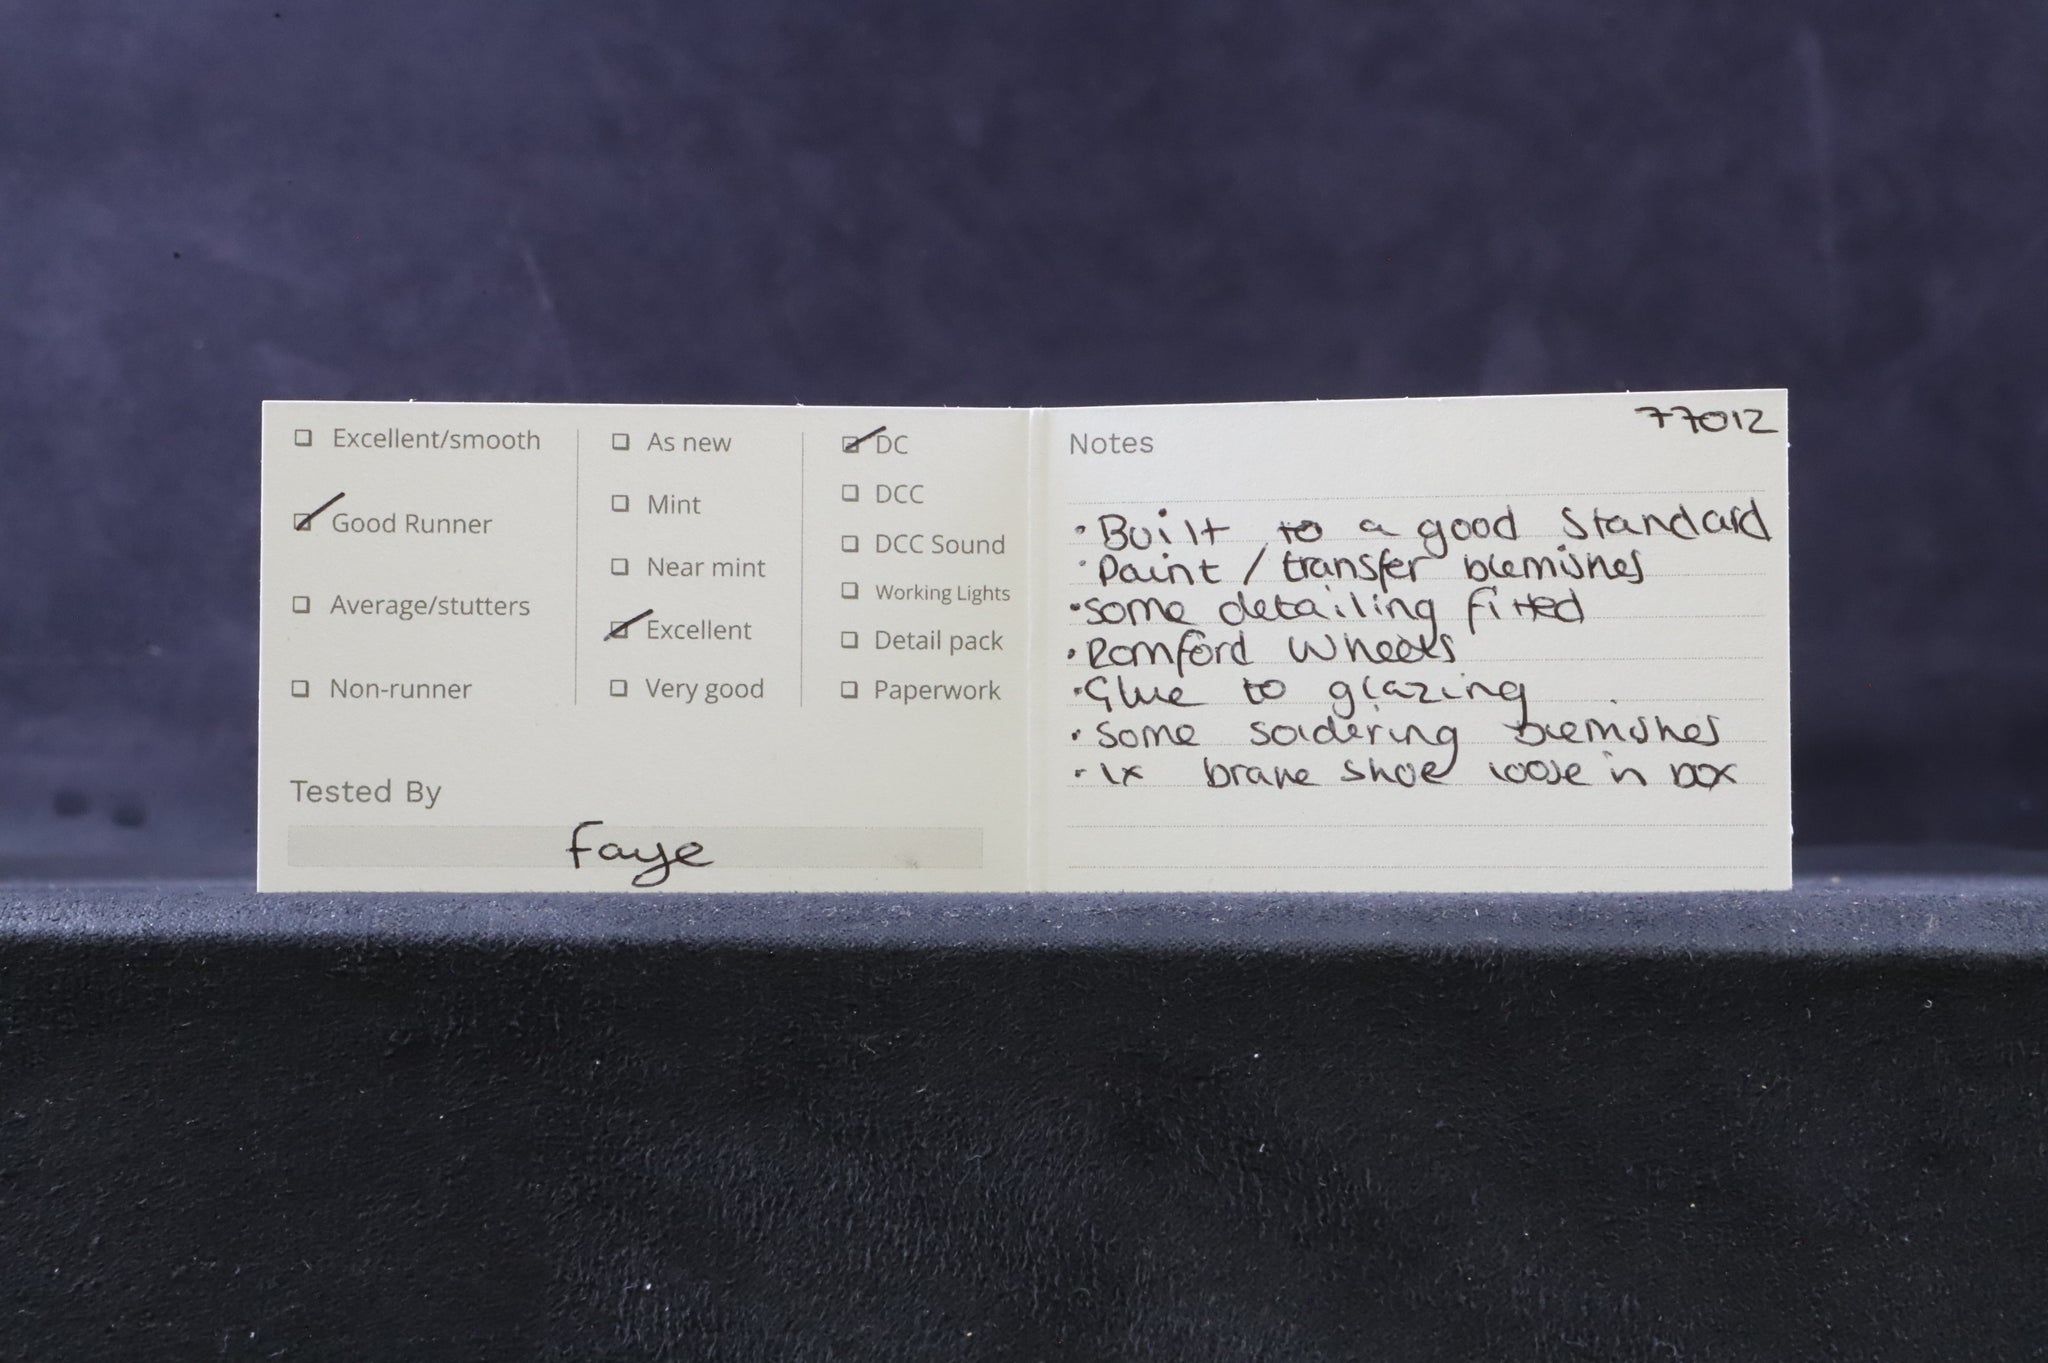 Excellent/smooth
Good Runner
Average/stutters
Non-runner
As new
Mint
Near mint
Excellent
Very good
DC
DCC
DCC Sound
Working Lights
Detail pack
Paperwork
Tested By
Faye
77012
Notes
• Built to a good standard
• Paint / transfer blemishes
• Some detailing fitted
• Romford Wheels
• Glue to glazing
• Some soldering blemishes
• 1x brake shoe loose in box